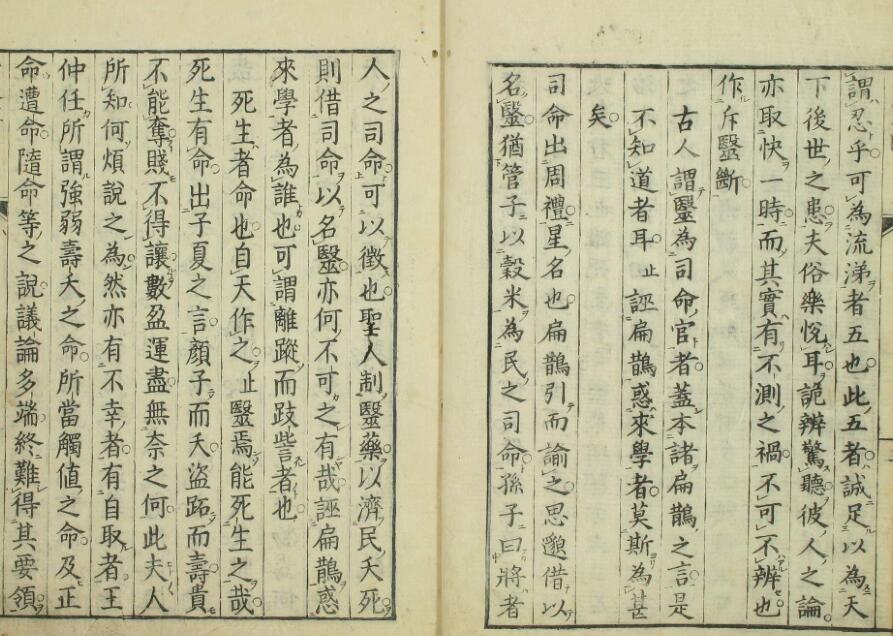 謂忍乎可為流涕者五也此五者誠足以為天
下後世之患夫俗樂悅耳詭辨驚聽彼人之論
亦取快一時而其實有不測之禍不可不辨也
作斥毉斷
古人謂毉為司命官者蓋本諸扁鵲之言是
不知道者耳止誣扁鵲惑來學者莫斯為甚
矣
司命出周禮星名也扁鵲引而諭之思邈借以
名毉猶管子以穀米為民之司命孫子曰將者
人之司命可以徵也聖人制毉藥以濟民夭死
則借司命以名毉亦何不可之有哉誣扁鵲惑
來學者為誰也可謂離蹤而跂訾者也
死生者命也自天作之止毉焉能死生之哉
死生有命出子夏之言顏子而夭盜跖而壽貴
不能奪賤不得讓數盈運盡無奈之何此夫人
所知何煩說之為然亦有不幸者有自取者王
仲任所謂強弱壽夭之命所當觸值之命及正
命遭命隨命等之說議論多端終難得其要領